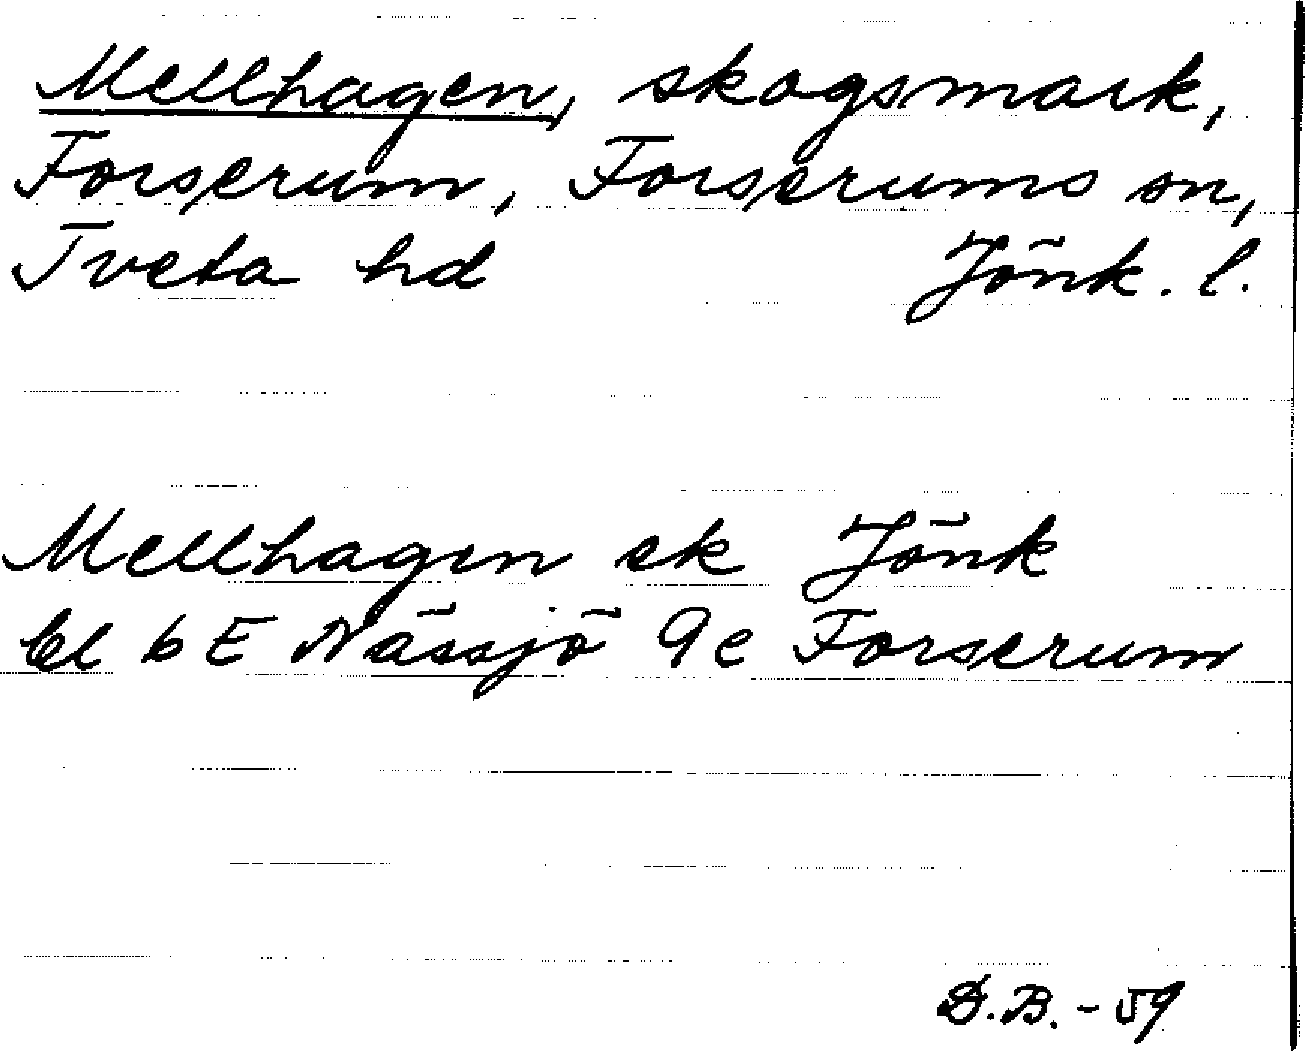 Mellhagen, skogsmark,
Forserum, Forserums sn,
Tveta hd Jönk. l.
Mellhagen sk Jönk
bl 6 E Nässjö 9 e Forserum
D.B. - 59